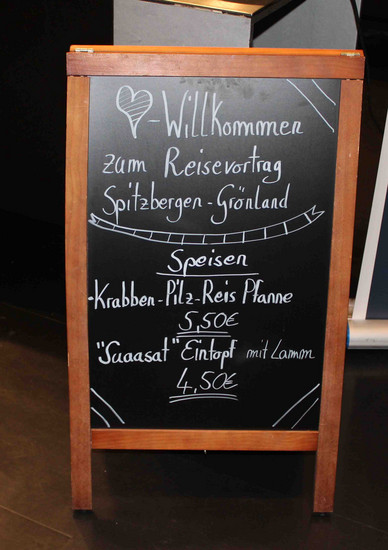 -Willkommen
zum Reisevortrag
Spitzbergen - Grönland
Speisen
·Krabben-Pilz-Reis Pfanne
5,50€
"Suaasat" Eintopf mit Lamm
4,50€